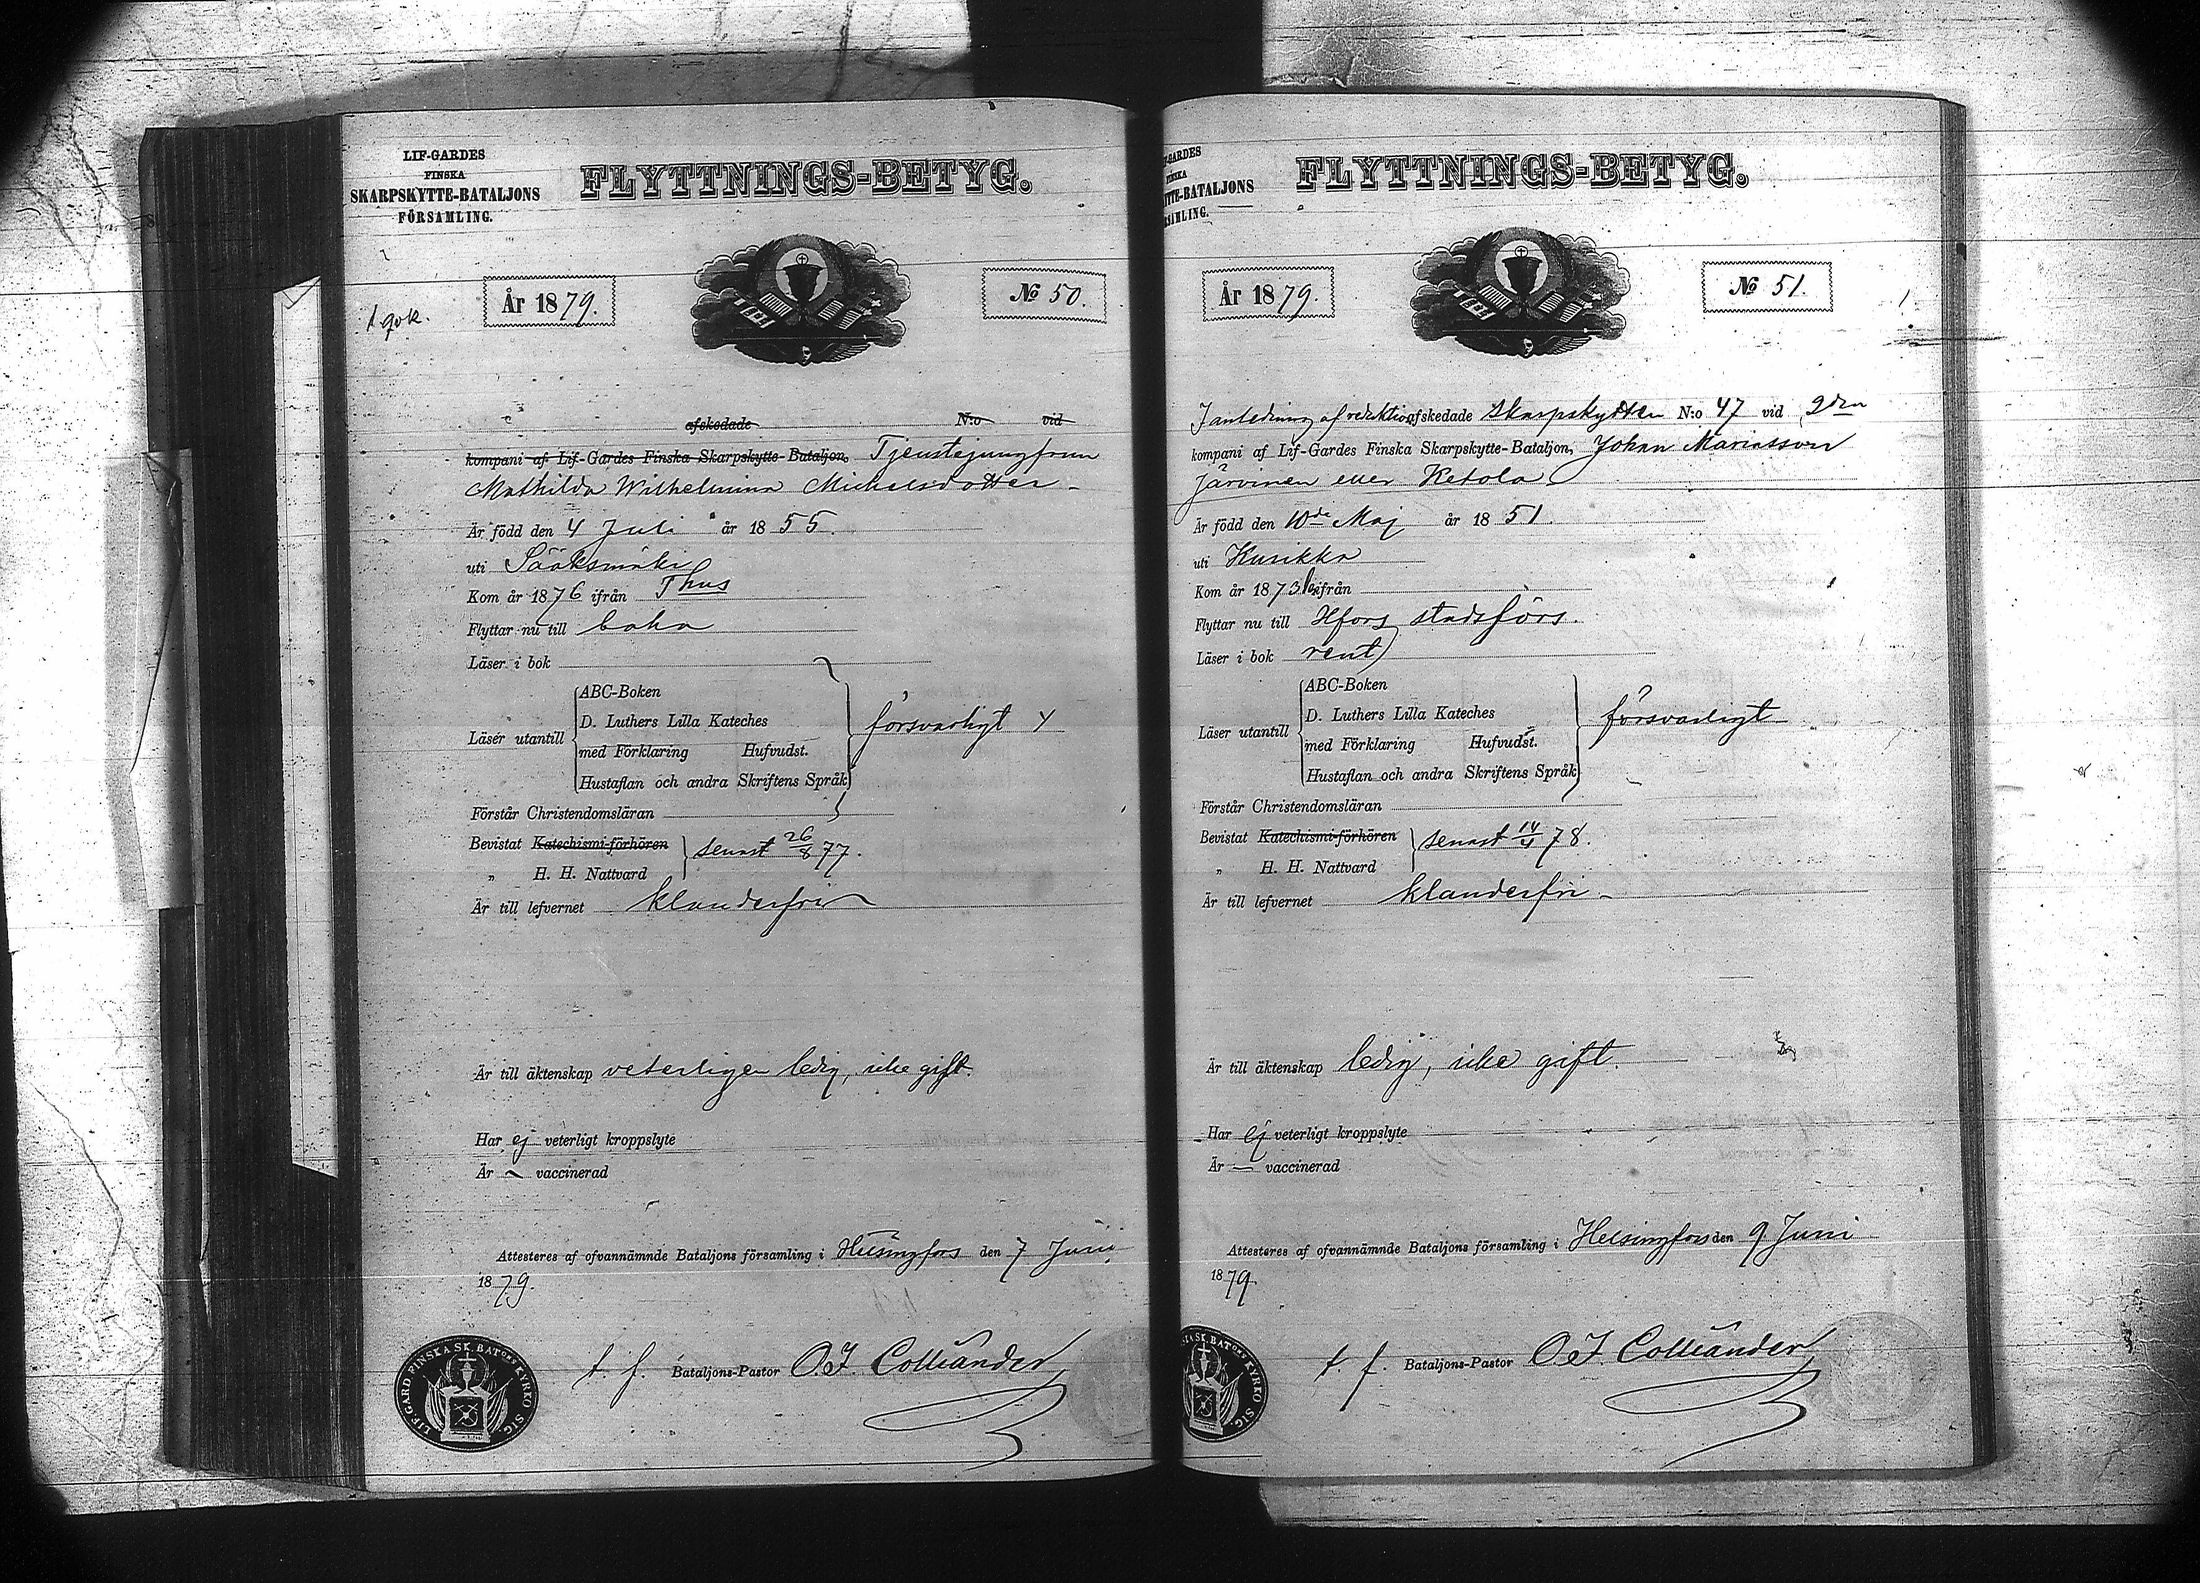 LIF-GARDES
FINSKA
SKARPSKYTTE-BATALJONS
FÖRSAMLING.
FLYTTNINGS-BETYG.
År 1879.
№ 50.
afskedade N:o vid
kompani af Lif-Gardes Finska Skarpskytte-Bataljon, Tjenstejungfrun
Mathilda Wilhelmina Michelsdotter
Är född den 4 Juli år 1855.
uti Sääksmäki
Kom år 1876 ifrån Thus
Flyttar nu till
Läser i bok
ABC-Boken
D. Luthers Lilla Kateches
Läser utantill
försvarligt
med Förklaring Hufvudst.
Hustaflan och andra Skriftens Språk
Förstår Christendomsläran
Bevistat Katechismi-förhören
senast 26/8 77.
„ H. H. Nattvard
Är till lefvernet klanderfri
Är till äktenskap veterligen ledig, icke gift.
Har ej veterligt kroppslyte
Är — vaccinerad
Attesteras af ofvannämnde Bataljons församling i Helsingfors den 7 Juni
1879.
t. f. Bataljons-Pastor O. F. Colliander
LIF-GARD. FINSKA SK. BATONS KYRKO SIG.
GARDES
TTE-BATALJONS
FLYTTNINGS-BETYG.
År 1879.
№ 51.
I anledning af reduktion afskedade Skarpskytten N:o 47 vid 2dra
kompani af Lif-Gardes Finska Skarpskytte-Bataljon, Johan Mariasson
Järvinen eller Ketola
Är född den 10de Maj år 1851.
uti Kurikka
Kom år 1873 ifrån
Flyttar nu till Hfors stadsförs.
Läser i bok rent
ABC-Boken
D. Luthers Lilla Kateches
Läser utantill
försvarligt
med Förklaring Hufvudst.
Hustaflan och andra Skriftens Språk
Förstår Christendomsläran
Bevistat Katechismi-förhören
senast 14/4 78.
„ H. H. Nattvard
Är till lefvernet klanderfri
Är till äktenskap ledig, icke gift.
Har ej veterligt kroppslyte
Är — vaccinerad
Attesteras af ofvannämnde Bataljons församling i Helsingfors den 9 Juni
1879.
t. f. Bataljons-Pastor O. F. Colliander
SK. BATONS KYRKO SIG.